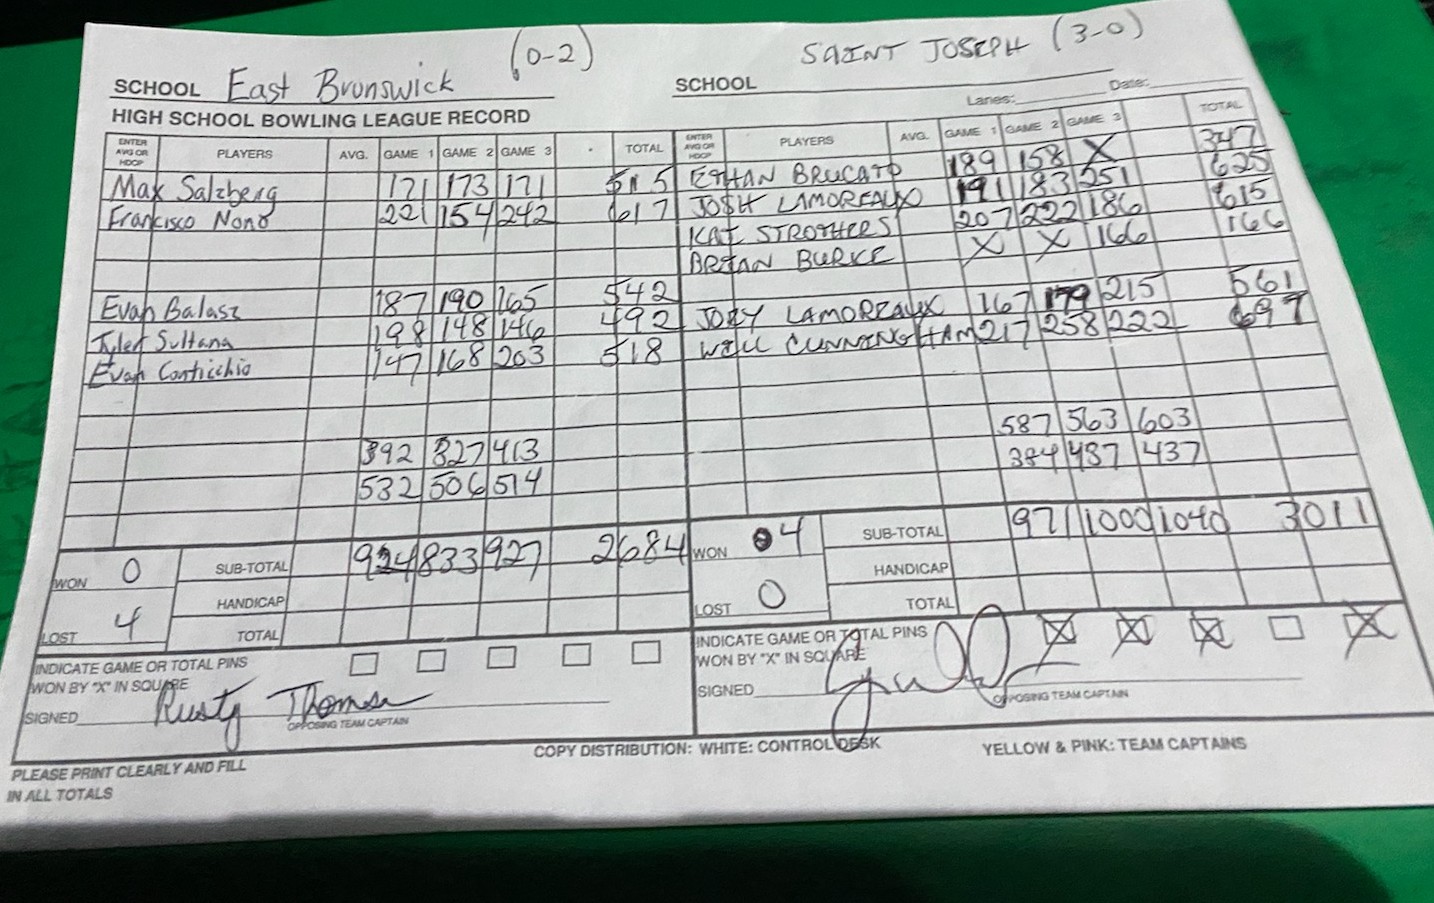 (0-2)
SAINT JOSEPH (3-0)
SCHOOL East Brunswick
SCHOOL
HIGH SCHOOL BOWLING LEAGUE RECORD
Lanes: Date:
ENTER AVG OR HDCP PLAYERS AVG. GAME 1 GAME 2 GAME 3 TOTAL
ENTER AVG OR HDCP PLAYERS AVG. GAME 1 GAME 2 GAME 3 TOTAL
Max Salzberg 171 173 171 515
Francisco Nono 221 154 242 617
Evan Balasz 187 190 165 542
Tyler Sultana 198 148 146 492
Evan Conticchio 147 168 203 518
392 327 413
532 506 514
WON 0 SUB-TOTAL 924 833 927 2684
HANDICAP
LOST 4 TOTAL
INDICATE GAME OR TOTAL PINS
WON BY "X" IN SQUARE
SIGNED Rusty Thomsen
OPPOSING TEAM CAPTAIN
ETHAN BRUCATO 189 158 X 347
JOSH LAMOREAUX 191 183 251 625
KAI STROTHERS 207 222 186 615
BRIAN BURKE X X 166 166
JORY LAMOREAUX 167 179 215 561
WILL CUNNINGHAM 217 258 222 697
587 563 603
384 437 437
WON 4 SUB-TOTAL 971 1000 1040 3011
HANDICAP
LOST 0 TOTAL
INDICATE GAME OR TOTAL PINS
WON BY "X" IN SQUARE
SIGNED
OPPOSING TEAM CAPTAIN
COPY DISTRIBUTION: WHITE: CONTROL DESK YELLOW & PINK: TEAM CAPTAINS
PLEASE PRINT CLEARLY AND FILL
IN ALL TOTALS